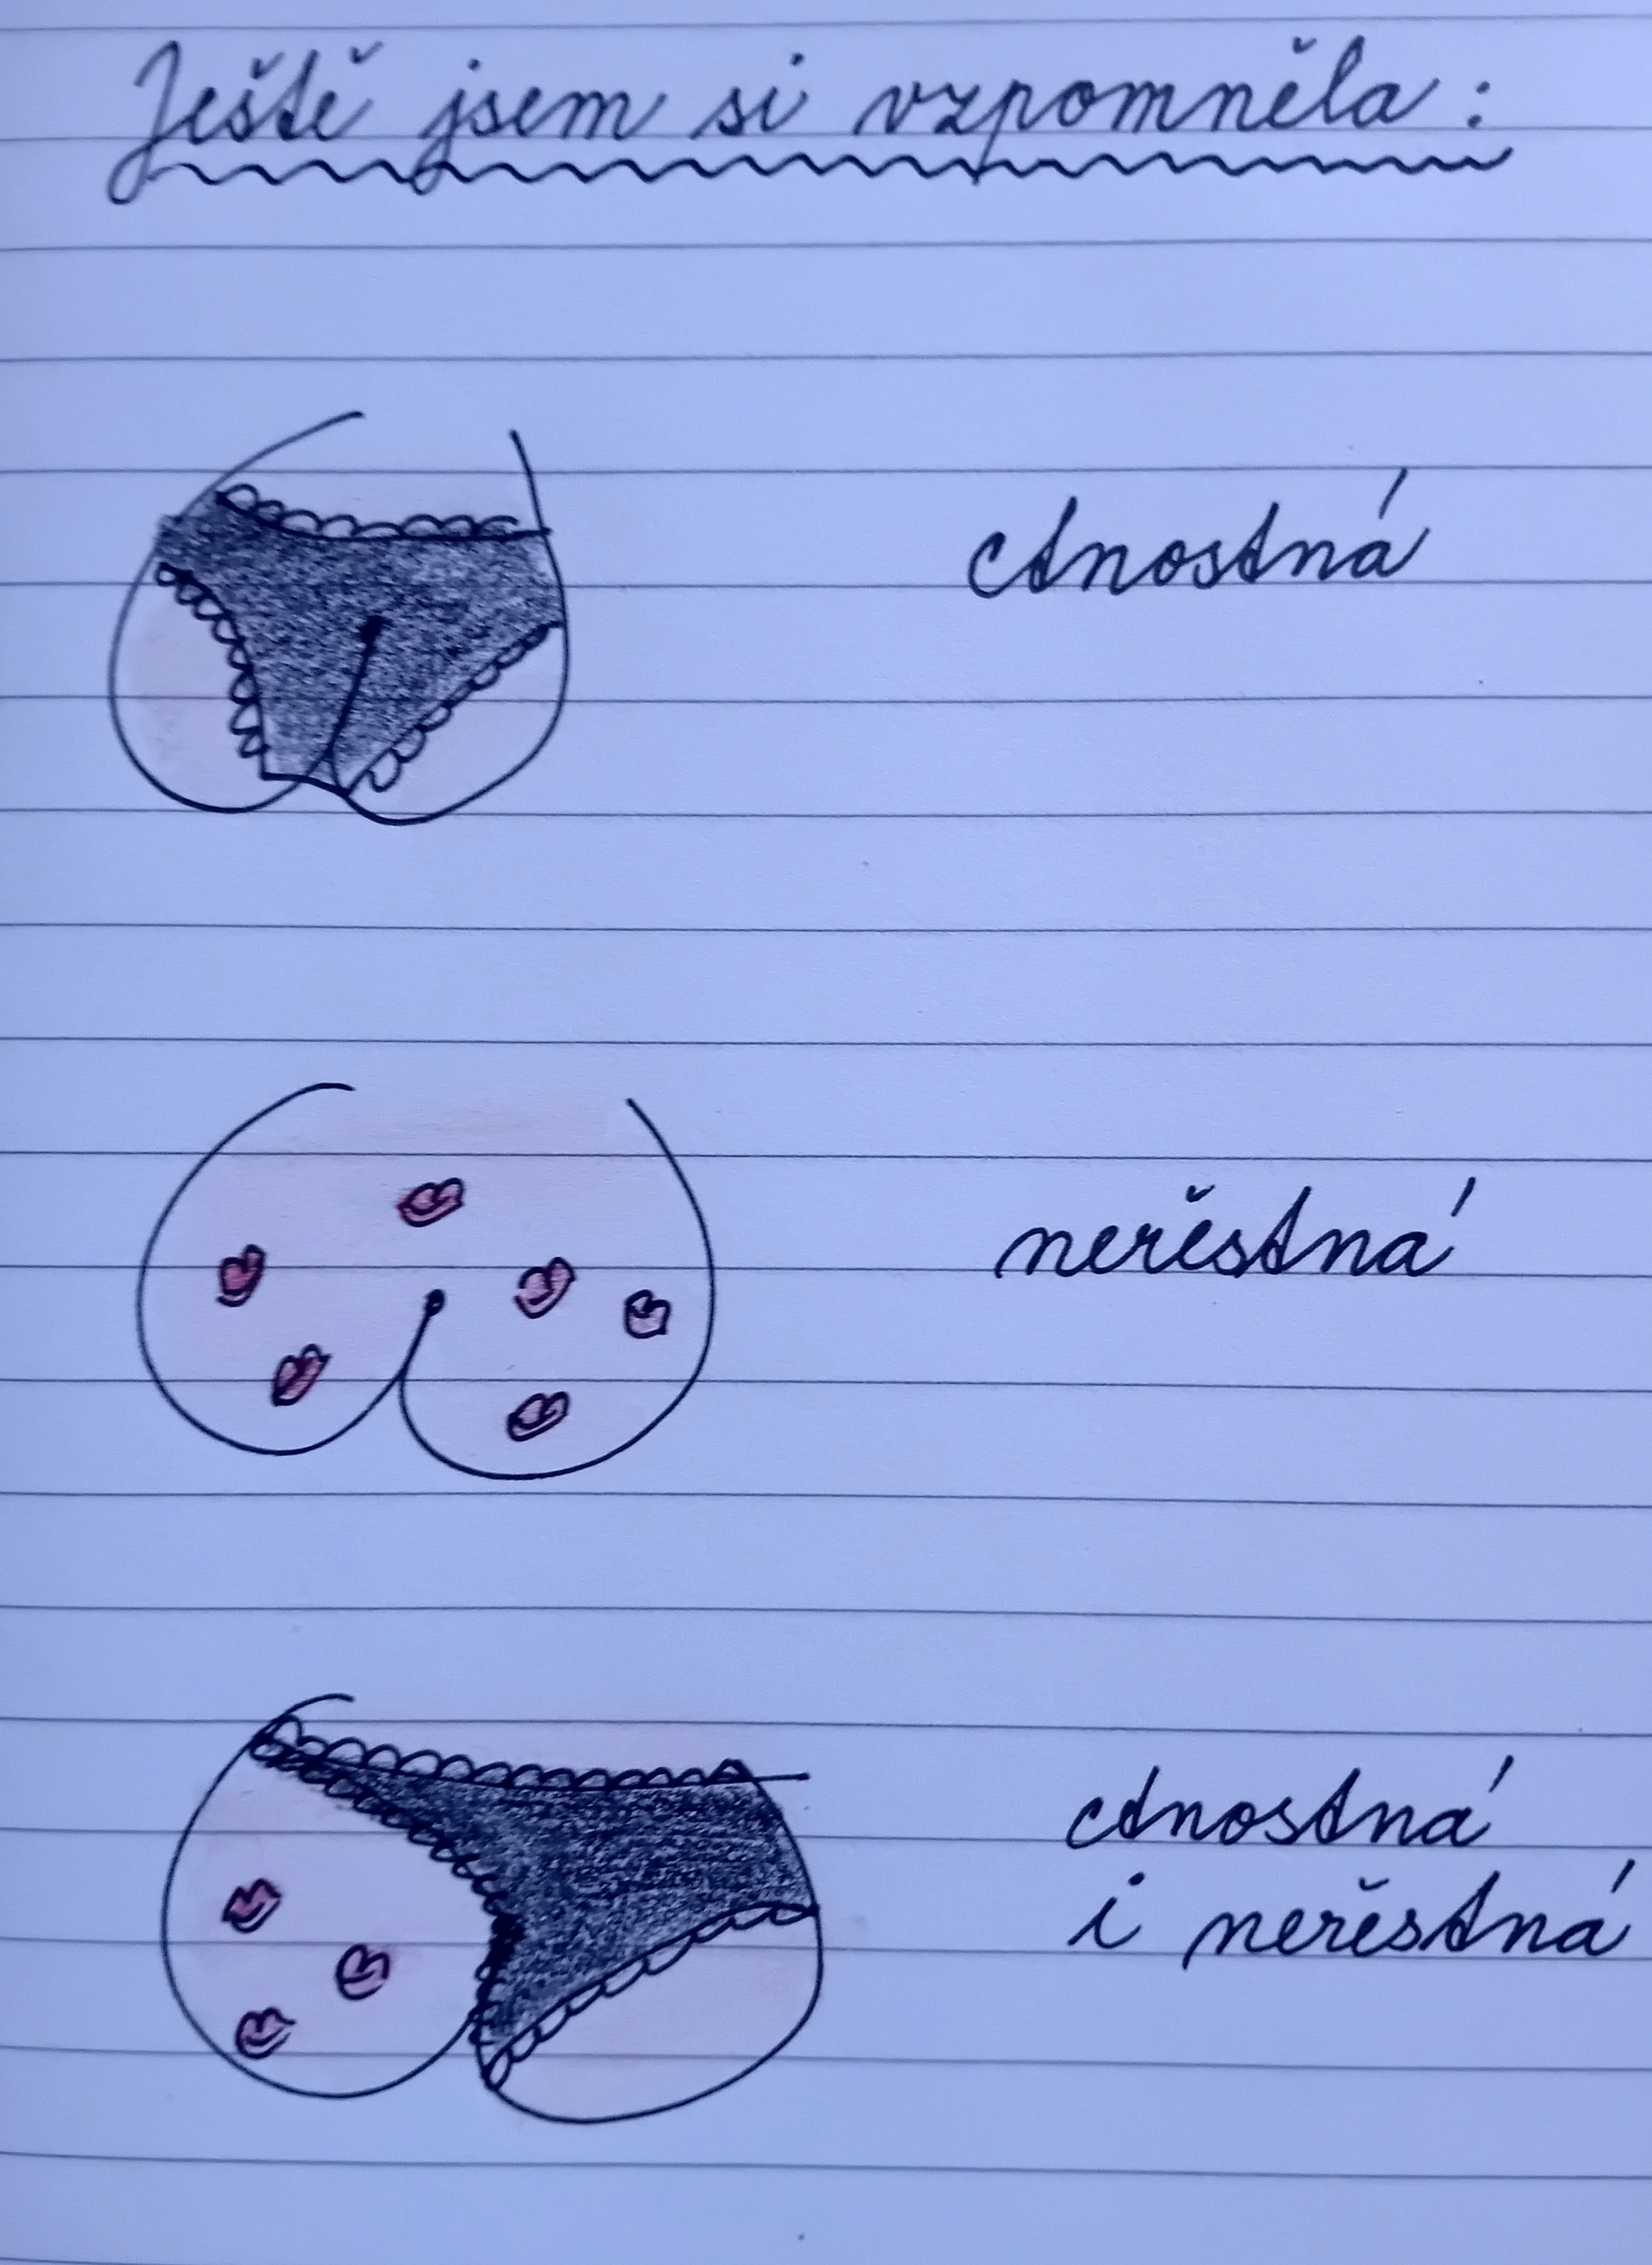 Ještě jsem si vzpomněla:
ctnostná
neřestná
ctnostná
i neřestná